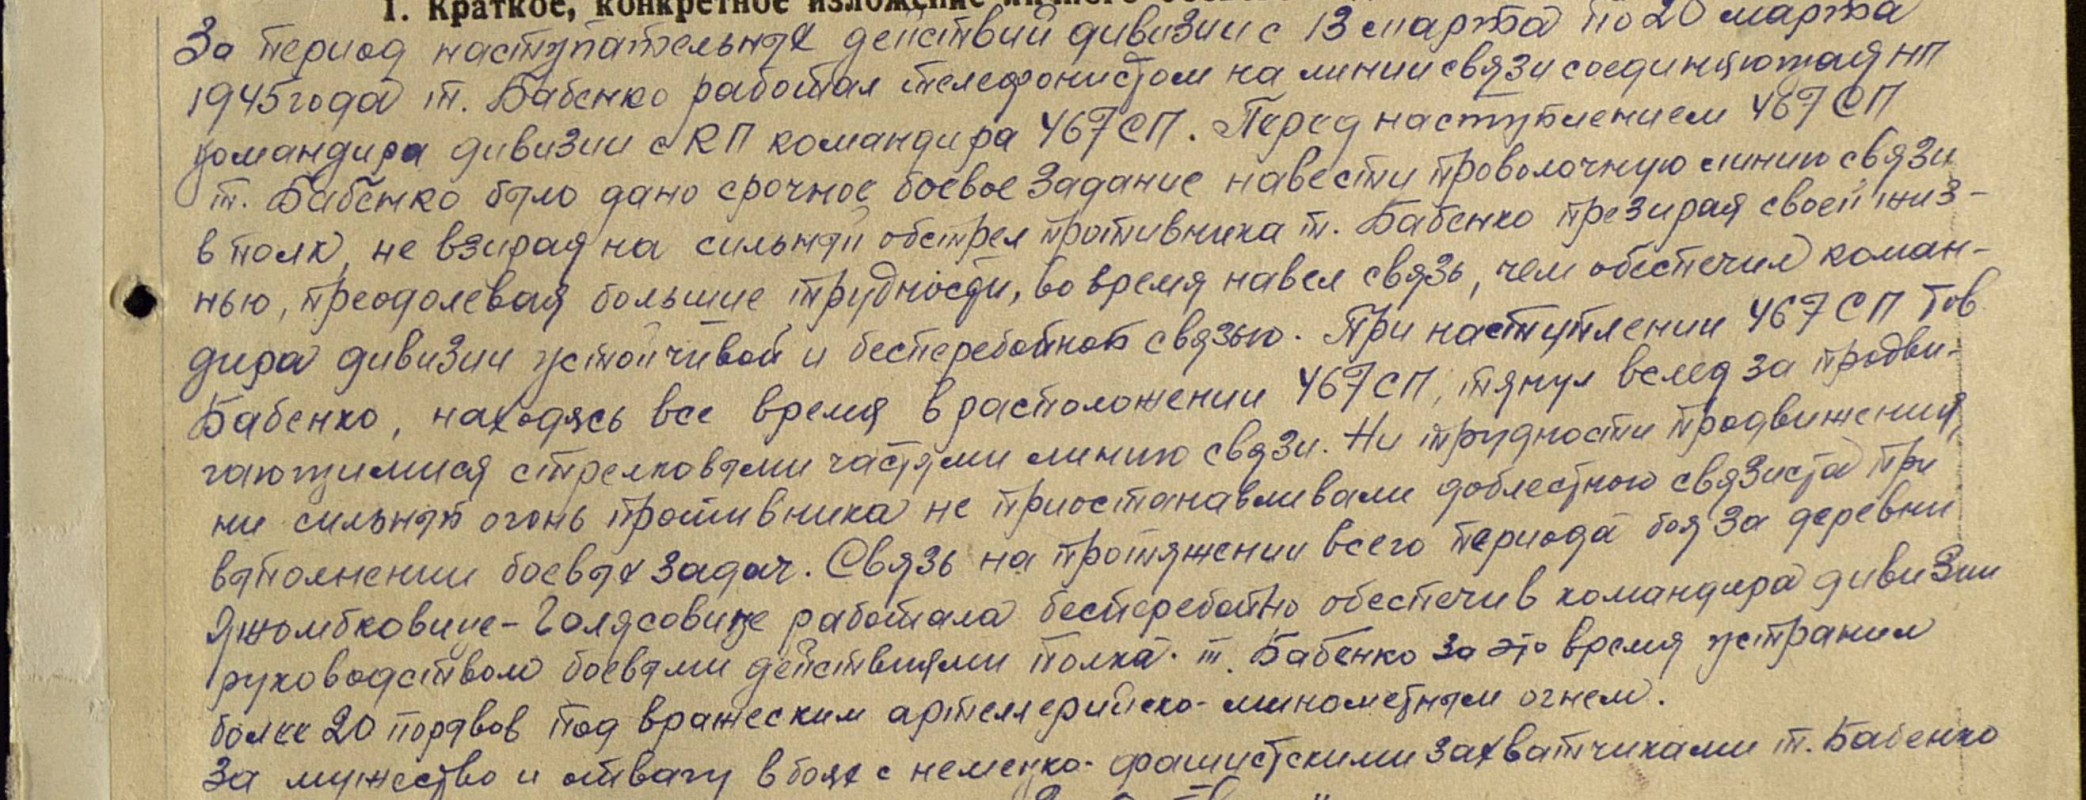 1. Краткое, конкретное изложение личного
За период наступательных действий дивизии с 13 марта по 20 марта
1945 года т. Бабенко работал телефонистом на линии связи соединяющая НП
командира дивизии с КП командира 467 СП. Перед наступлением 467 СП
т. Бабенко было дано срочное боевое задание навести проволочную линию связи
в полк, не взирая на сильный обстрел противника т. Бабенко презирая своей жиз-
нью, преодолевая большие трудности, во время навел связь, чем обеспечил коман-
дира дивизии устойчивой и бесперебойной связью. При наступлении 467 СП Тов
Бабенко, находясь все время в расположении 467 СП, тянул вслед за продви-
гающимися стрелковыми частями линию связи. Ни трудности продвижения,
ни сильный огонь противника не приостанавливали доблестного связиста при
выполнении боевых задач. Связь на протяжении всего периода боя за деревни
Джомбковице-Голясовице работала бесперебойно обеспечив командира дивизии
руководством боевыми действиями полка. т. Бабенко за это время устранил
более 20 порывов под вражеским артеллерийско-минометным огнем.
За мужество и отвагу в боях с немецко-фашистскими захватчиками т. Бабенко